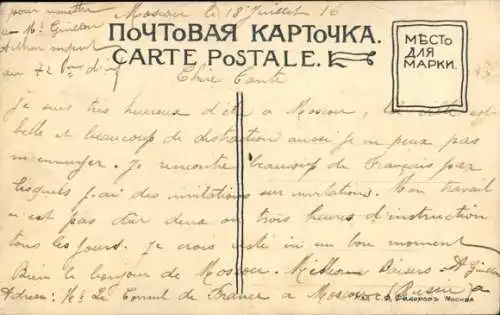 pour remettre
a Mr Guillon
au 72
Moscou le 18 Juillet 16
ПОЧТОВАЯ КАРТОЧКА.
CARTE POSTALE.
МѢСТО
ДЛЯ
МАРКИ.
Chère Tante
je suis très heureux d'être a Moscou, la ville est
belle et beaucoup de distraction aussi je ne peux pas
m'ennuyer. Je rencontre beaucoup de Français par
lesquels j'ai des invitations sur invitations. Mon travail
n'est pas dur deux ou trois heures d'instruction
tous les jours. Je crois ici un bon moment
Bien le bonjour de Moscou. Millions Baisers
Adresse: Mr Le Consul de France a Moscou (Russie)
С. Ѳедоровъ Москва